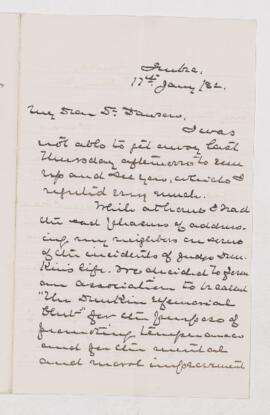 17th Jany /82.
My Dear Dr. Dawson,
I was
not able to get away last
Thursday afternoon to run
up and see you, which I
regretted very much.
While at home I had
the sad pleasure of address-
ing my neighbors on some
of the incidents of Judge Dun-
kin's life. We decided to form
an association to be called
"The Dunkin Memorial
Club" for the purpose of
promoting temperance
and for the mental
and moral improvement